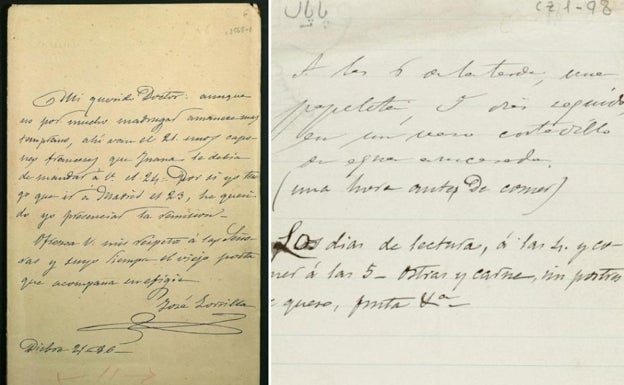 Mi querido Doctor: aunque
no por mucho madrugar amanece mas
temprano, ahi van el 21 unos capo-
nes franceses que Juana le debia
de mandar á V. el 24. Por si yo ten-
go que ir á Madrid el 23, he queri-
do yo presenciar la remision.
Ofrezca V. mis respetos á las Seño-
ras y suyo siempre el viejo poeta
que acompaña en efigie
José Zorrilla
Dicbre 21-86
cz 1-98
A las 6 de la tarde, una
papeleta, 5 dias seguidos
en un vaso
de agua azucarada.
(una hora antes de comer)
Los dias de lectura, á las 4, y co-
mer á las 5- ostras y carne, sin postres
queso, fruta &a-